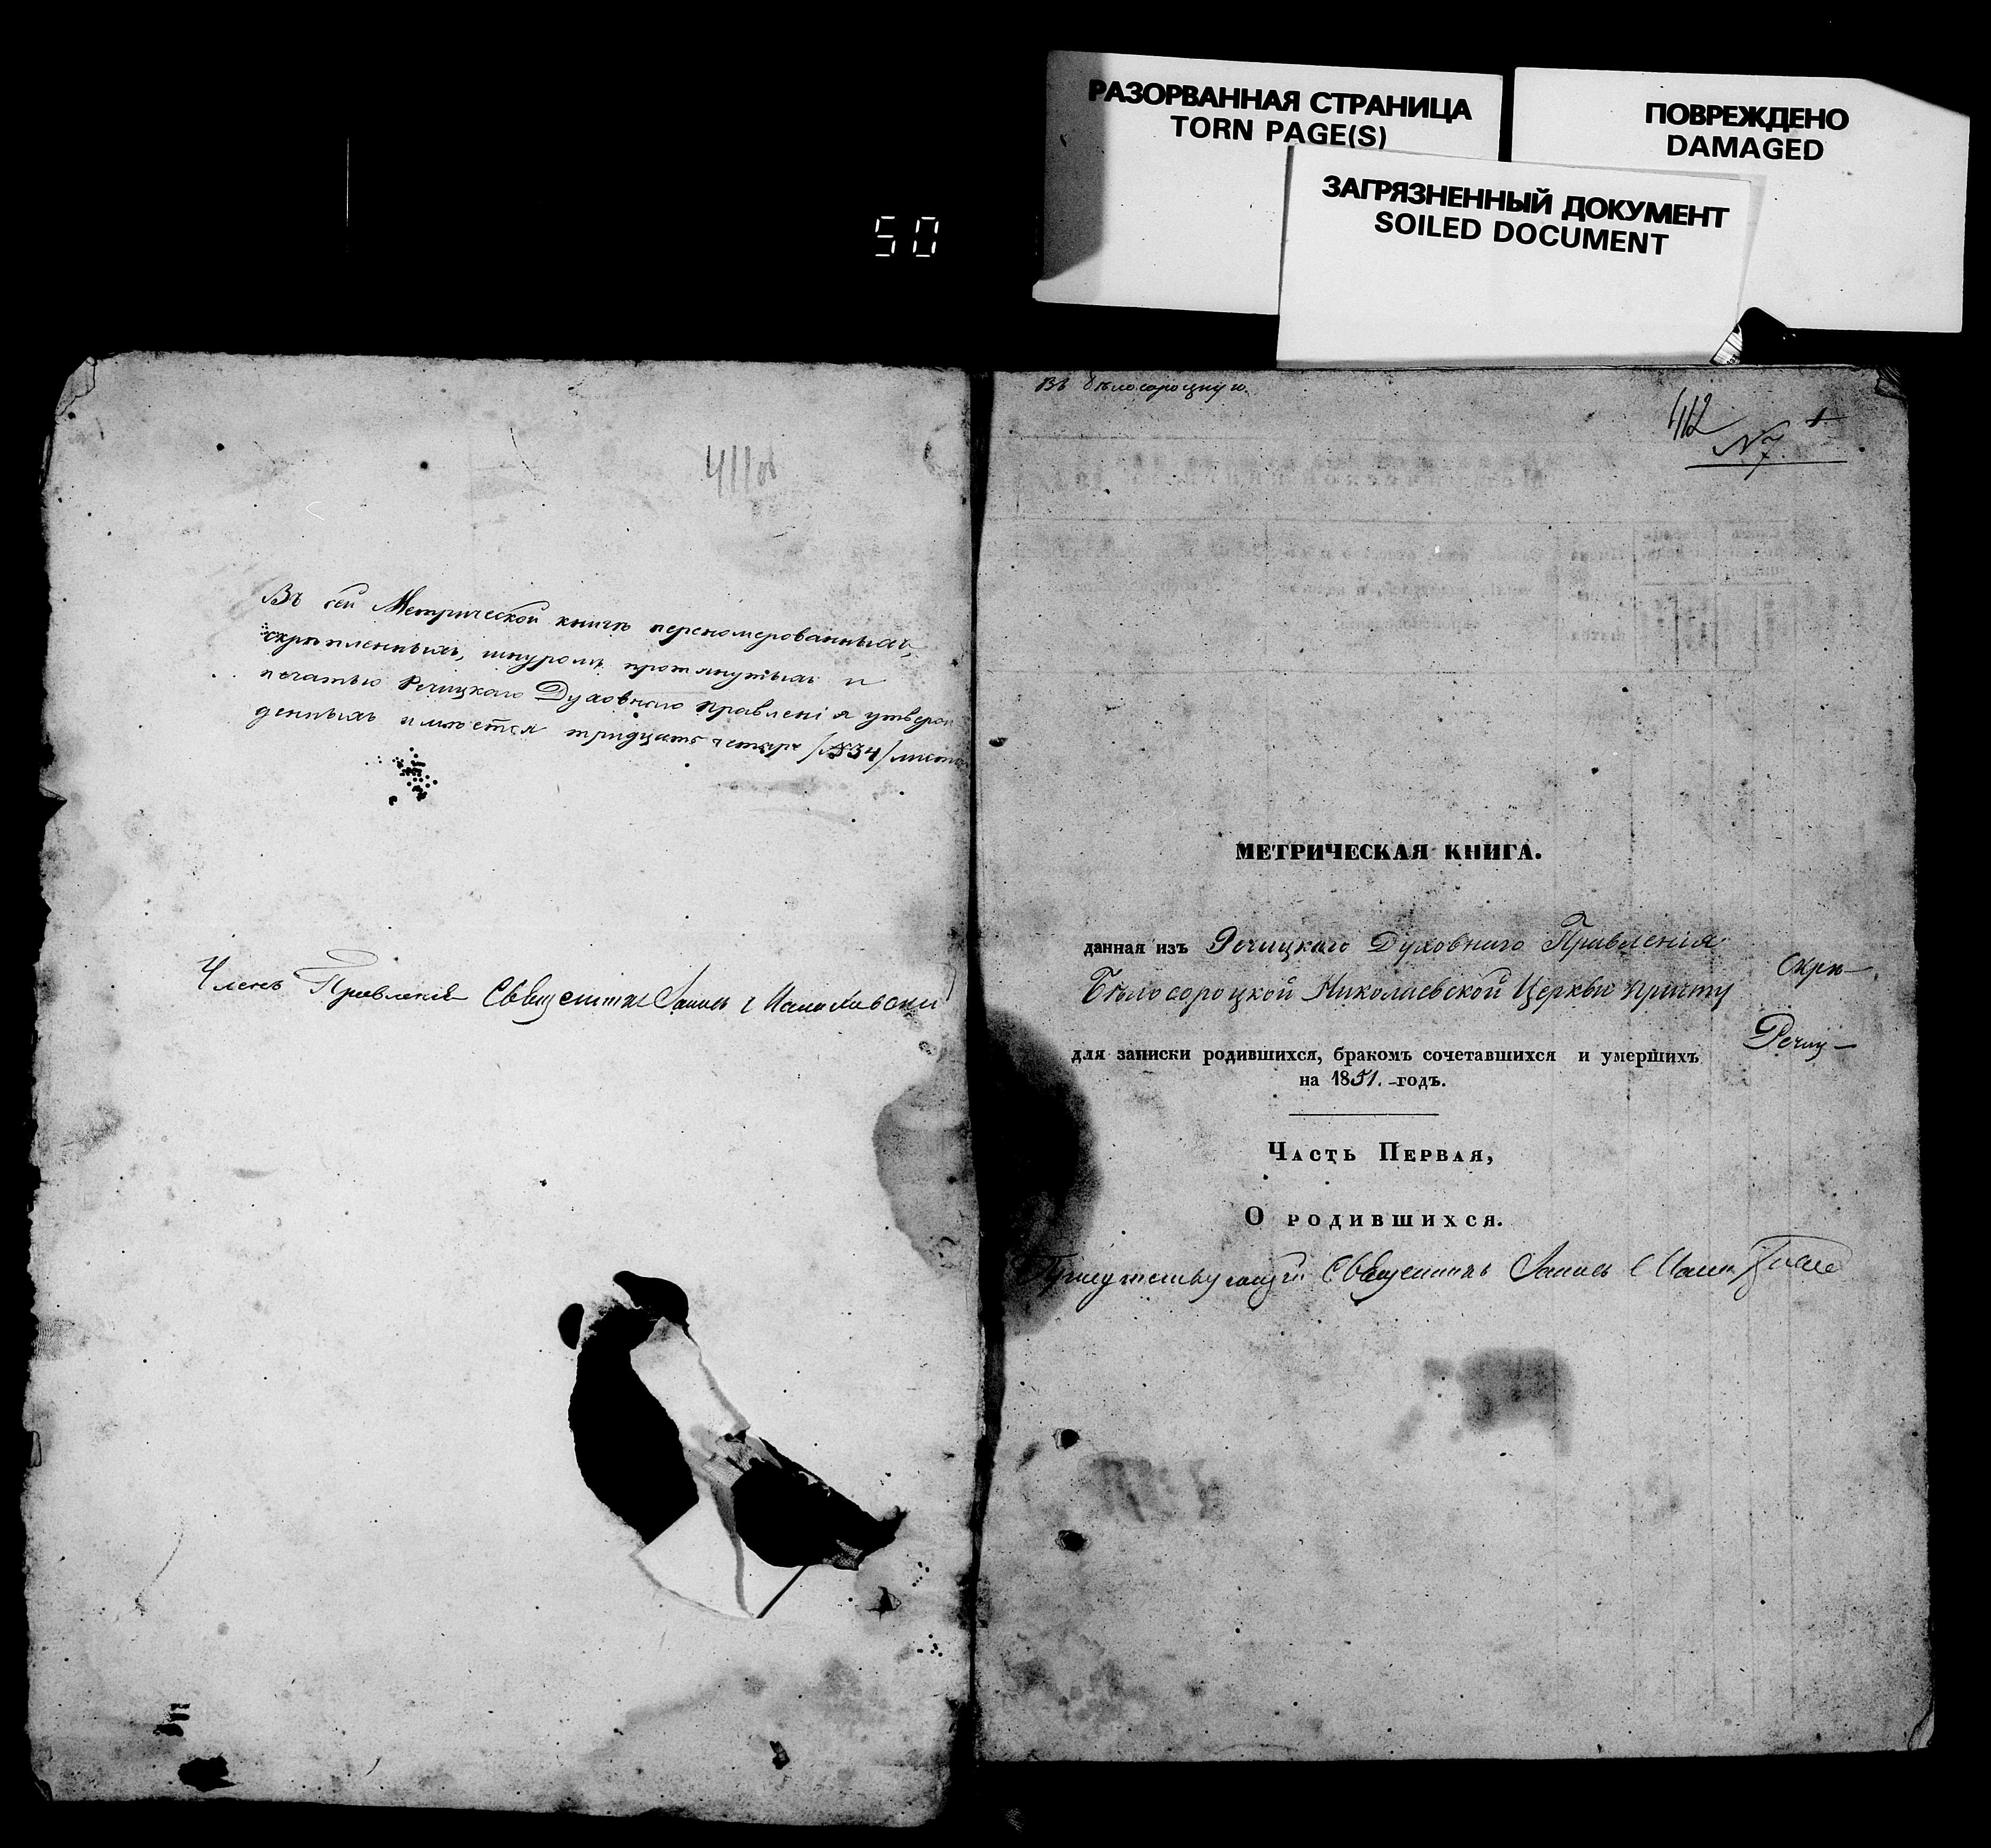 РАЗОРВАННАЯ СТРАНИЦА
TORN PAGE(S)
ПОВРЕЖДЕНО
DAMAGED
ЗАГРЯЗНЕННЫЙ ДОКУМЕНТ
SOILED DOCUMENT
50
411об
Въ сей Метрической книгѣ переномерованныхъ,
скрѣпленныхъ, шнуромъ протянутыхъ и
печатью Речицкаго Духовнаго Правленія утверж
денныхъ имѣется тридцать четыре /34/ листа
Членъ Правленія Священникъ
Въ Бѣлосороцкую.
412
1
№ 7.
МЕТРИЧЕСКАЯ КНИГА.
данная изъ Речицкаго Духовнаго Правленія
Бѣлосороцкой Николаевской Церкви причту
Скрѣ-
Речиц-
для записки родившихся, бракомъ сочетавшихся и умершихъ
на 1851.-годъ.
Часть Первая,
О родившихся.
Присутствующій Священникъ